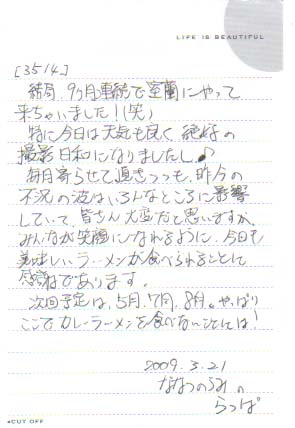 LIFE IS BEAUTIFUL
[3514]
結局、9ヶ月連続で室蘭にやって
来ちゃいました！(笑)
特に今日は天気も良く、絶好の
撮影日和になりましたし♪
毎月寄らせて頂きつつも、昨今の
不況の波は、いろんなところに影響
していて、皆さん大変だと思いますが、
みんなが笑顔になれるように、今日も
美味しいラーメンが食べられることに
感謝であります。
次回予定は、5月、7月、8月。やっぱり
ここでカレーラーメンを食べないことには！
2009.3.21
ななつのうみの
らっぱ
CUT OFF